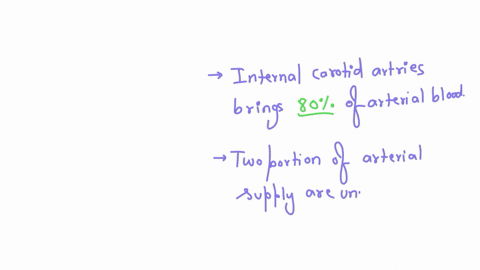 → Internal carotid artries
brings 80% of arterial blood.
→ Two portion of arterial
supply are un.